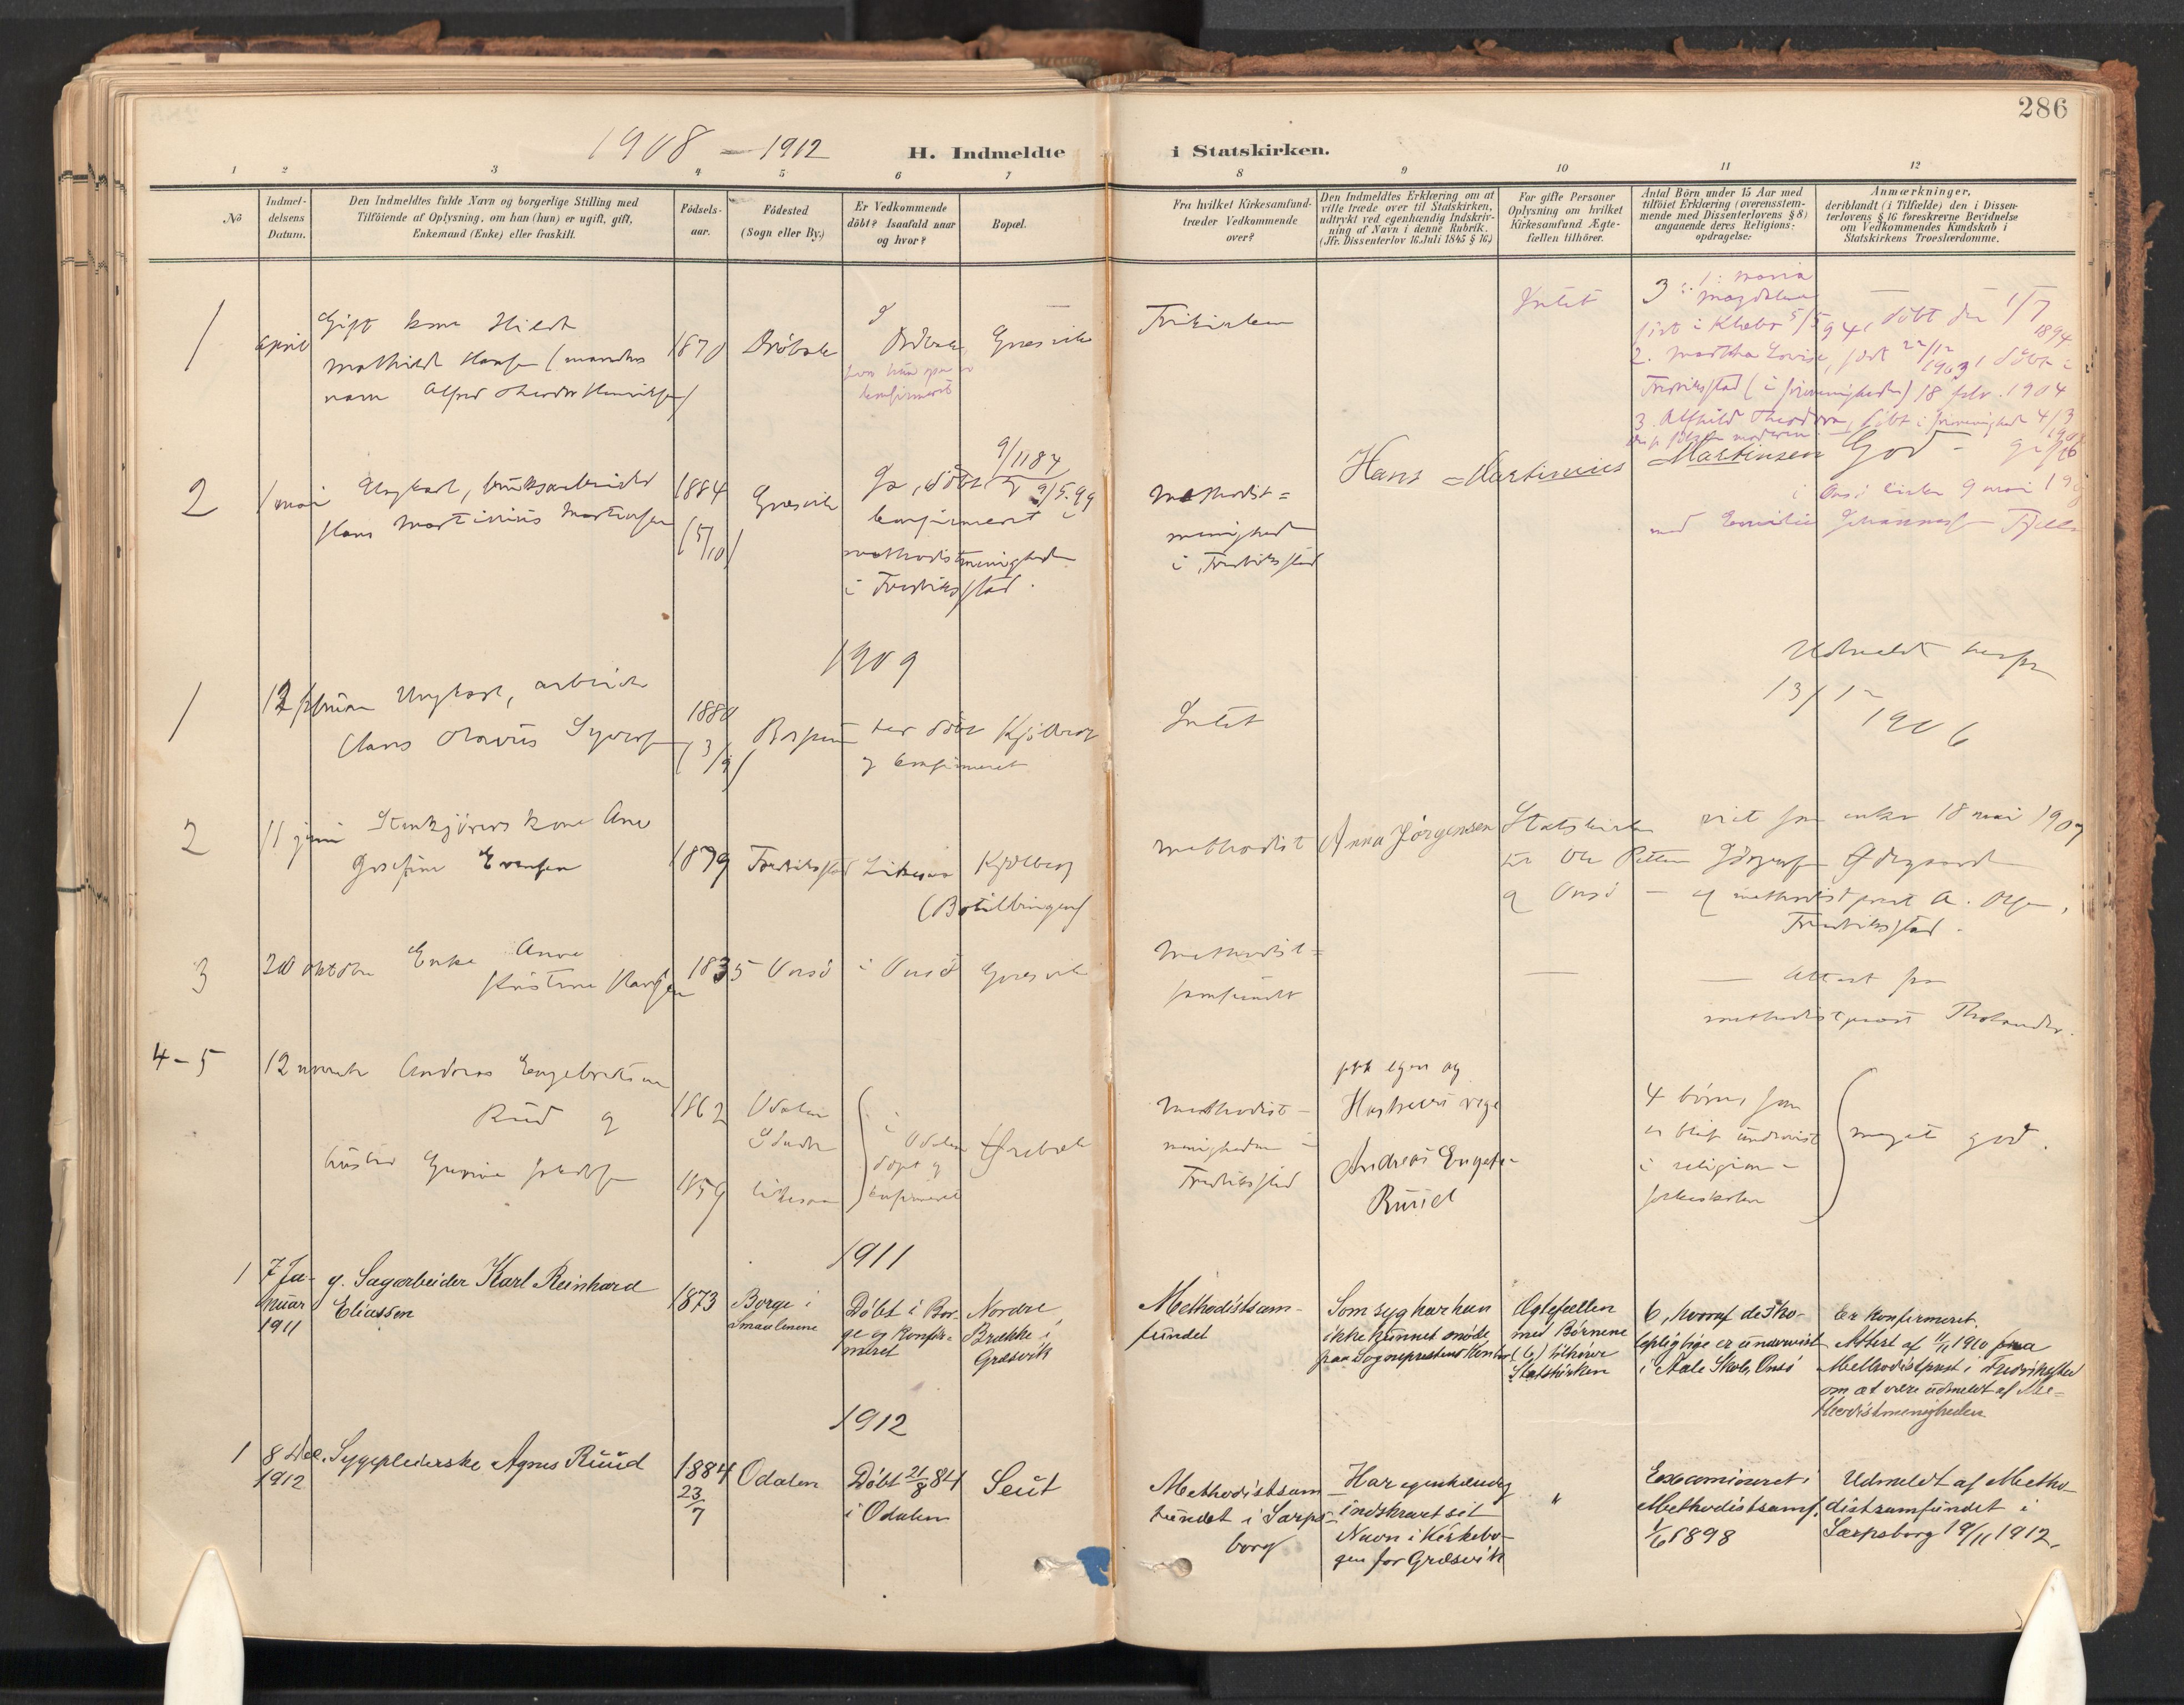 286
1908 – 1912
H. Indmeldte i Statskirken.
1 2 3 4 5 6 7 8 9 10 11 12
No
Indmel-
delsens
Datum.
Den Indmeldtes fulde Navn og borgerlige Stilling med
Tilföiende af Oplysning, om han (hun) er ugift, gift,
Enkemand (Enke) eller fraskilt.
Födsels-
aar.
Födested
(Sogn eller By.)
Er Vedkommende
döbt? Isaafald naar
og hvor?
Bopæl.
Fra hvilket Kirkesamfund
træder Vedkommende
over?
Den Indmeldtes Erklæring om at
ville træde over til Statskirken,
udtrykt ved egenhændig Indskriv-
ning af Navn i denne Rubrik.
(Jfr. Dissenterlov 16 Juli 1845 § 16.)
For gifte Personer
Oplysning om hvilket
Kirkesamfund Ægte-
fællen tilhörer.
Antal Börn under 15 Aar med
tilföiet Erklæring (overensstem-
mende med Dissenterlovens § 8)
angaaende deres Religions-
opdragelse.
Anmærkninger,
deriblandt (i Tilfælde) den i Dissen-
terlovens § 16 foreskrevne Bevidnelse
om Vedkommendes Kundskab i
Statskirkens Troeslærdomme.
1
april
Gift kone
Mathilde Hansen (mandens
navn Alfred Theodor Henriksen)
1870
Dröbak
Dröbak
konfirmeret
Græsvik
Frikirken
Intet
3: 1: Maria
Magdalena
5/5 94, döbt den 1/7
1894
2. Martha Lovise, född 22/12
1903, döbt i
Fredriksstad (i frimenigheden) 18 febr. 1904
3. Alfhild Theodora, döbt i frimenighed 4/3
2
1 mai
Ungkarl, brugsarbeider
Hans Martinius Martinsen
1884
(5/10)
Græsvik
Ja, döbt 9/11 84
9/5. 99
konfirmeret i
methodistmenigheden
i Fredriksstad.
Methodist=
menighed
i Fredriksstad
Hans Martinius Martinsen
God –
i Onsö kirke 9 mai
med Emilie Johannesen
1909
1
12 februar
Ungkarl, arbeider
Claus Olavus Syversen
1880
(3/9)
döbt
og konfirmeret
Kjölberg
Intet
Udmeldt herfra
13/12
1906
2
11 juni
Stenkjörers kone Ane
Josefine Evensen
1879
Fredriksstad
Ligesaa
Kjölberg
methodist
Anna Jörgensen
Statskirken
Ole Petter Jörgensen
og Onsö
18 mai 1909
af methodistprest A. Olsen,
Fredriksstad.
3
20 oktober
Enke Anne
Kristine
1835
Onsö
i Onsö
Græsvik
Methodist=
samfundet
—
— Attest fra
methodistprest Tholander.
4 – 5
12 novemb
Andreas Engebretsen
Ruud og
hustru
1862
1859
Odalen
Söndre
ligesaa
i
Odalen
döpt og
konfirmeret
Methodist-
menigheden i
Fredriksstad
egen og
Hustrues vegne
Andreas Engebr.
Ruud
4 börn, som
er blit undervist
i religion i
folkeskolen
meget god.
1911
1
7 Ja-
nuar
1911
g. Sagarbeider Karl Reinhard
Eliassen
1873
Borge i
Smaalenene
Döbt i Bor-
ge og konfir-
meret
Nordre
Brække i
Græsvik
Methodistsam-
fundet
Som syg har han
ikke kunnet möde
paa Sogneprestens Kontor
Ægtefællen
med Börnene
(6) tilhörer
Statskirken
6, hvoraf de sko-
lepligtige er undervist
i Aale Skole, Onsö
Er konfirmeret.
Attest af 11/11 1910 fra
Methodistprest i Fredrikstad
om at være udmeldt af Me-
thodistmenigheden
1912
1
8 Dec.
1912
Sygepleierske Agnes Ruud
1884
23/7
Odalen
Döbt 21/8 84
i Odalen
Seut
Methodistsam-
fundet i Sarps-
borg
Har egenhændig
indskrevet sit
Navn i Kirkebo-
gen for Græsvik
"
Examineret i
Methodistsamf.
1/6 1898
Udmeldt af Metho-
distsamfundet i
Sarpsborg 19/11 1912.